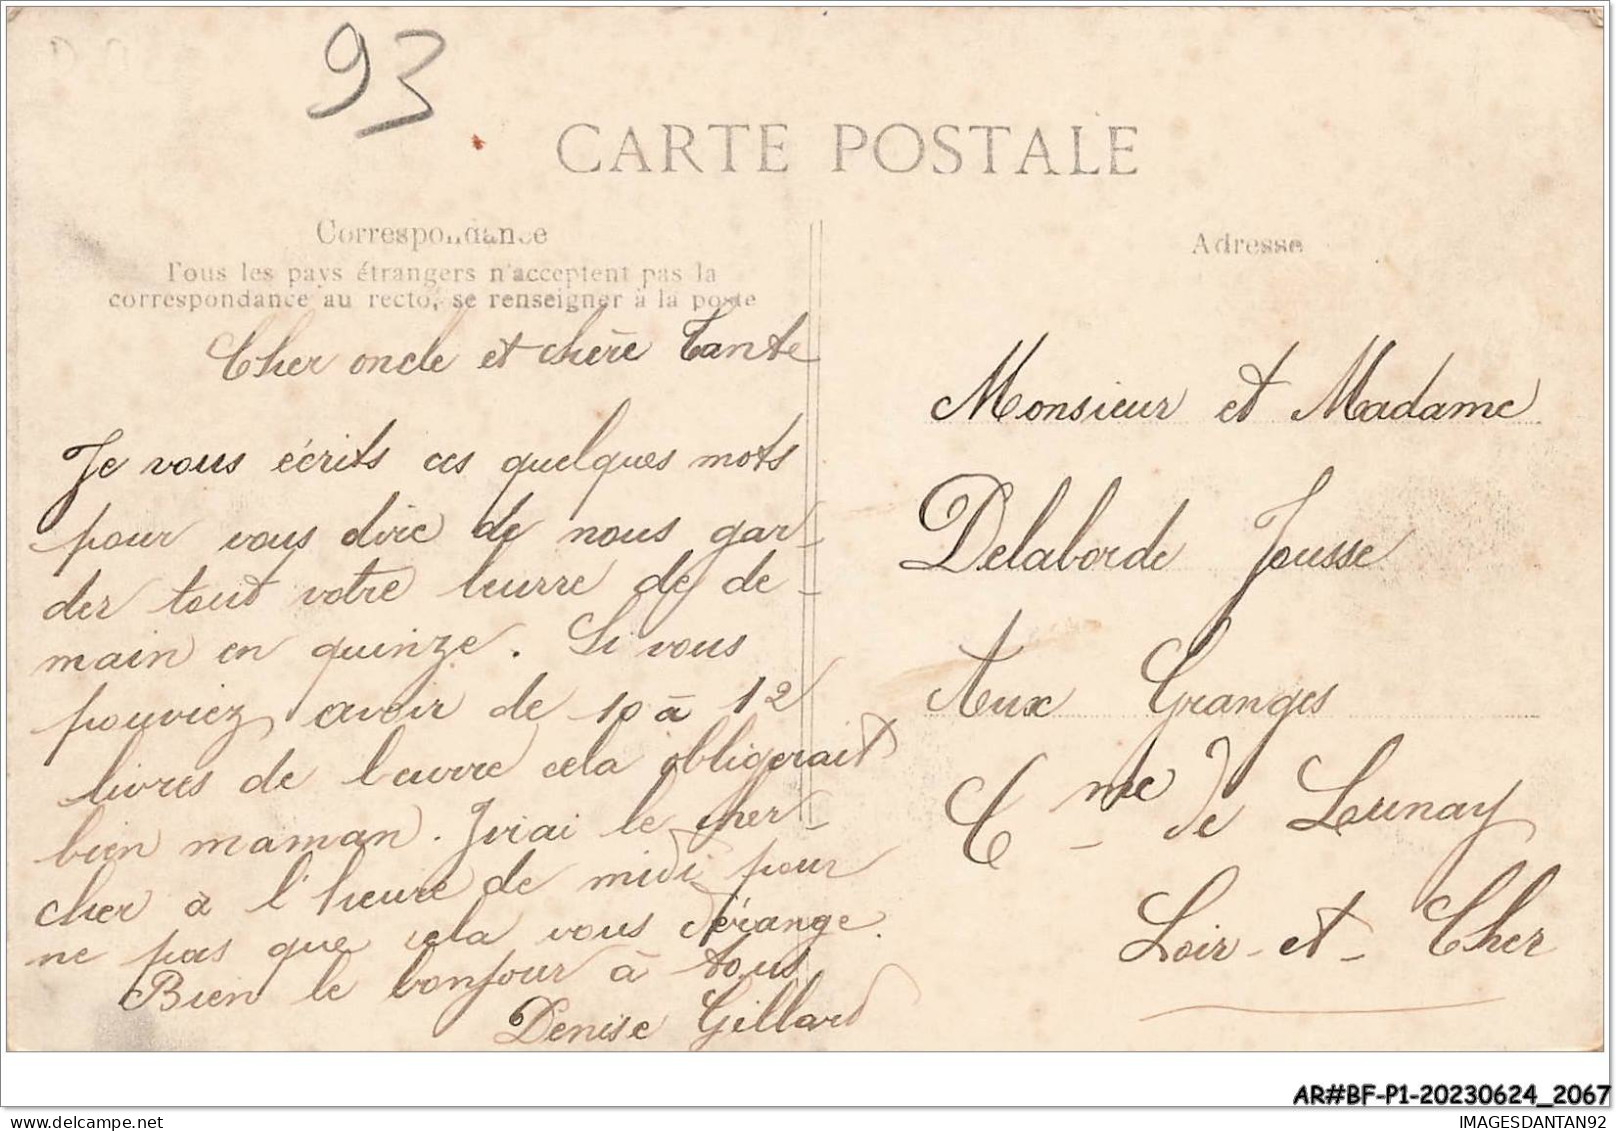 93
CARTE POSTALE
Correspondance
Tous les pays étrangers n'acceptent pas la
correspondance au recto, se renseigner à la poste
Cher oncle et chère Tante
Je vous écrits ces quelques mots
pour vous dire de nous gar-
der tout votre beurre de de-
main en quinze. Si vous
pouviez avoir de 10 à 12
livres de beurre cela obligerait
bien maman. J'irai le cher-
cher à l'heure de midi pour
ne pas que cela vous dérange.
Bien le bonjour à tous
Denise Gillard
Adresse
Monsieur et Madame
Delaborde Jousse
Aux Granges
Cme de Lunay
Loir-et-Cher
AR#BF-P1-20230624_2067
IMAGESDANTAN92